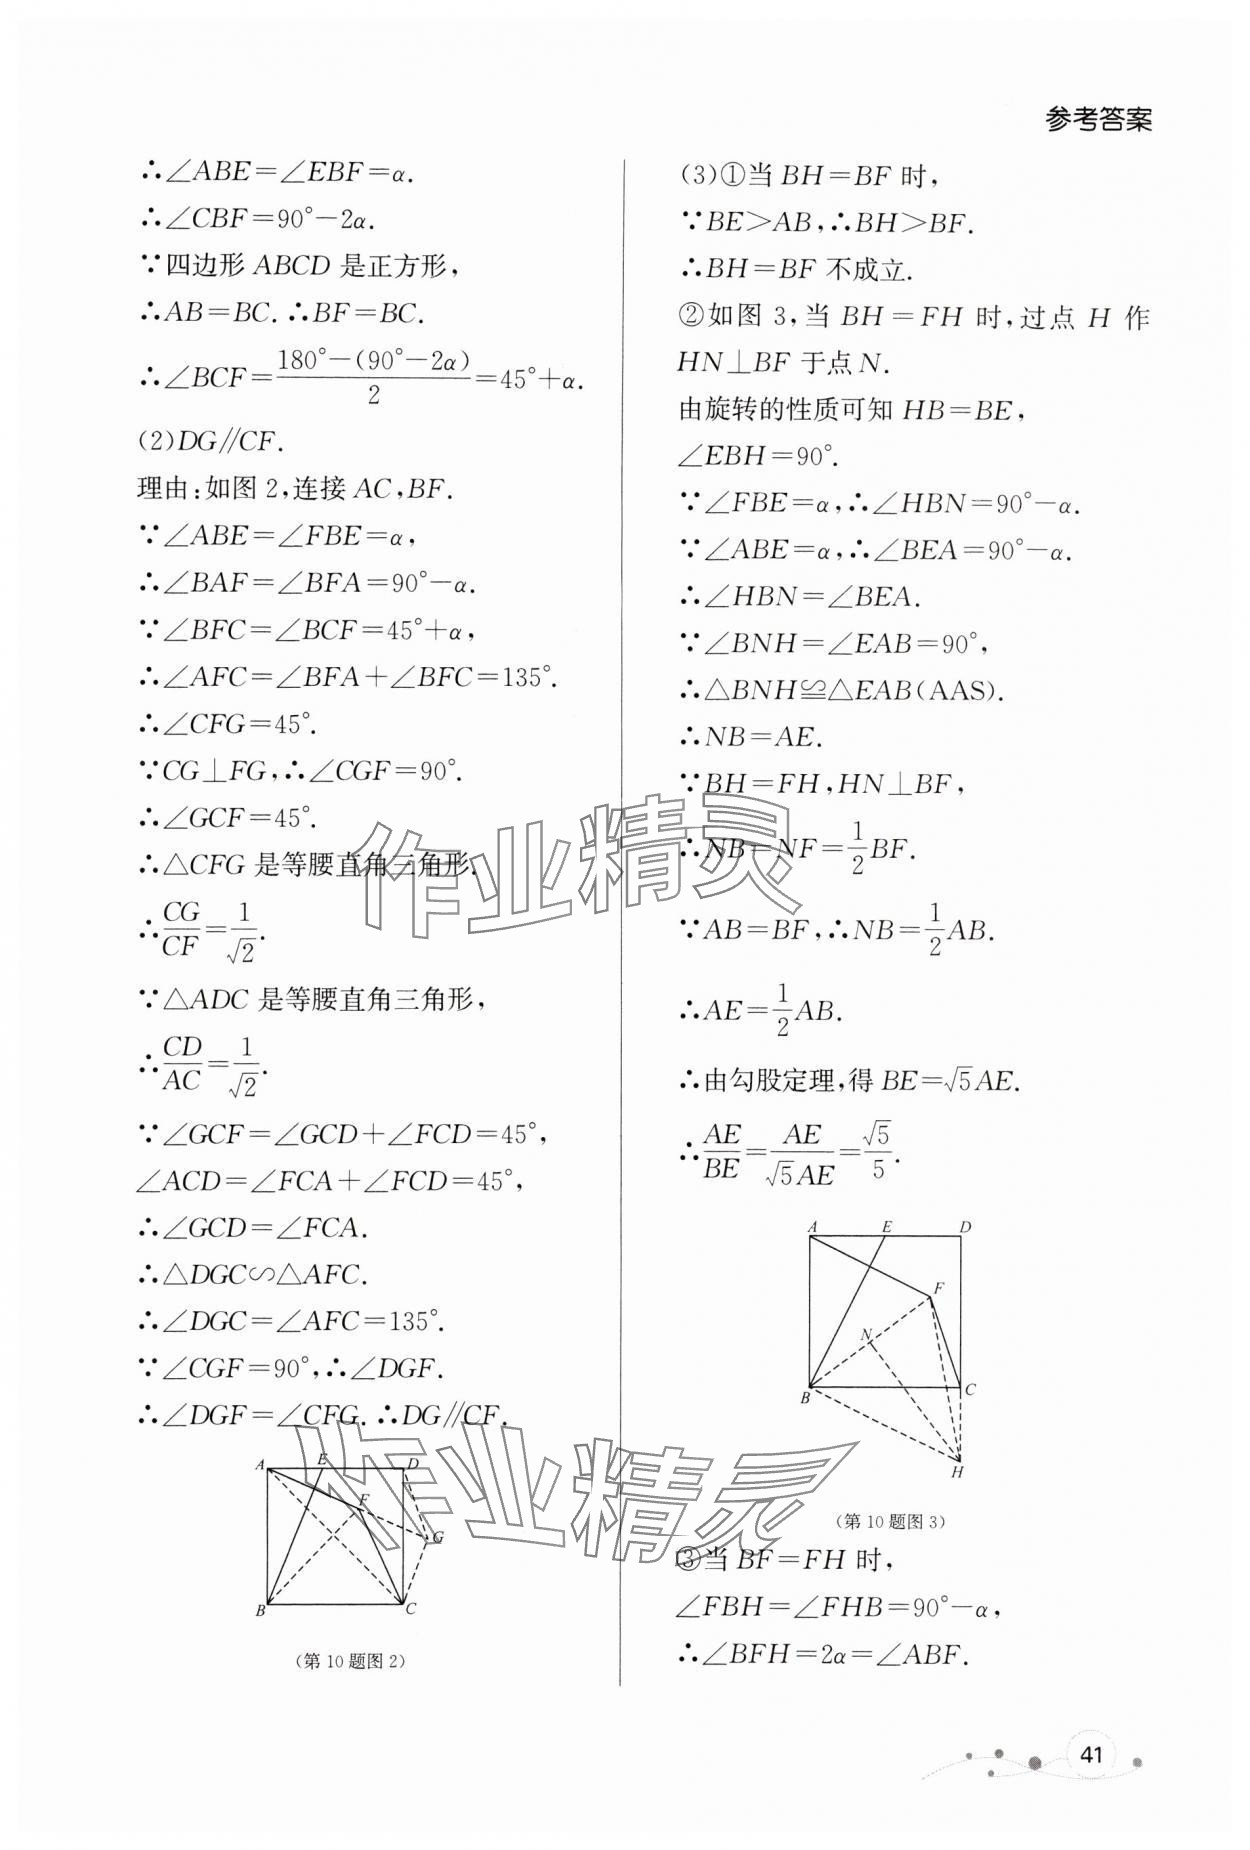 参考答案
∴∠ABE=∠EBF=α.
∴∠CBF=90°-2α.
∵四边形 ABCD 是正方形,
∴AB=BC. ∴BF=BC.
∴∠BCF=\frac{180°-(90°-2α)}{2}=45°+α.
(2)DG∥CF.
理由:如图 2,连接 AC,BF.
∵∠ABE=∠FBE=α,
∴∠BAF=∠BFA=90°-α.
∵∠BFC=∠BCF=45°+α,
∴∠AFC=∠BFA+∠BFC=135°.
∴∠CFG=45°.
∵CG⊥FG,∴∠CGF=90°.
∴∠GCF=45°.
∴△CFG 是等腰直角三角形.
∴\frac{CG}{CF}=\frac{1}{√2}.
∵△ADC 是等腰直角三角形,
∴\frac{CD}{AC}=\frac{1}{√2}.
∵∠GCF=∠GCD+∠FCD=45°,
∠ACD=∠FCA+∠FCD=45°,
∴∠GCD=∠FCA.
∴△DGC∽△AFC.
∴∠DGC=∠AFC=135°.
∵∠CGF=90°,∴∠DGF.
∴∠DGF=∠CFG. ∴DG∥CF.
A E D
F
G
B C
(第 10 题图 2)
(3)①当 BH=BF 时,
∵BE>AB,∴BH>BF.
∴BH=BF 不成立.
②如图 3,当 BH=FH 时,过点 H 作
HN⊥BF 于点 N.
由旋转的性质可知 HB=BE,
∠EBH=90°.
∵∠FBE=α,∴∠HBN=90°-α.
∵∠ABE=α,∴∠BEA=90°-α.
∴∠HBN=∠BEA.
∵∠BNH=∠EAB=90°,
∴△BNH≌△EAB(AAS).
∴NB=AE.
∵BH=FH,HN⊥BF,
∴NB=NF=\frac{1}{2}BF.
∵AB=BF,∴NB=\frac{1}{2}AB.
∴AE=\frac{1}{2}AB.
∴由勾股定理,得 BE=√5AE.
∴\frac{AE}{BE}=\frac{AE}{√5AE}=\frac{√5}{5}.
A E D
F
N
B C
H
(第 10 题图 3)
③当 BF=FH 时,
∠FBH=∠FHB=90°-α,
∴∠BFH=2α=∠ABF.
41
作业精灵
作业精灵